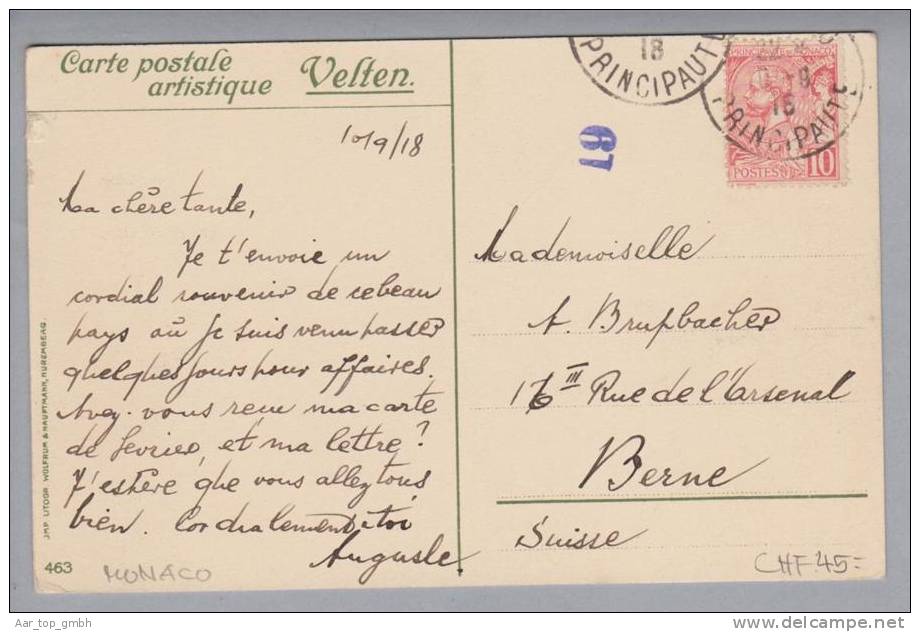 Carte postale
artistique Velten.
18
PRINCIPAUTÉ
PRINCIPAUTÉ
PRINCIPAUTÉ DE MONACO
POSTES 10
67
10/9/18
Ma chère tante,
Je t'envoie un
cordial souvenir de ce beau
pays où je suis venu passer
quelques jours pour affaires.
Avez-vous reçu ma carte
de fevrier, et ma lettre?
J'espère que vous allez tous
bien. Cordialement à toi
Auguste
Mademoiselle
A. Brupbacher
16 III Rue de l'Arsenal
Berne
Suisse
IMP. LITOGR. WOLFRUM & HAUPTMANN, NUREMBERG.
463
MONACO
CHF 45=
Aar_top_gmbh
www.delcampe.net